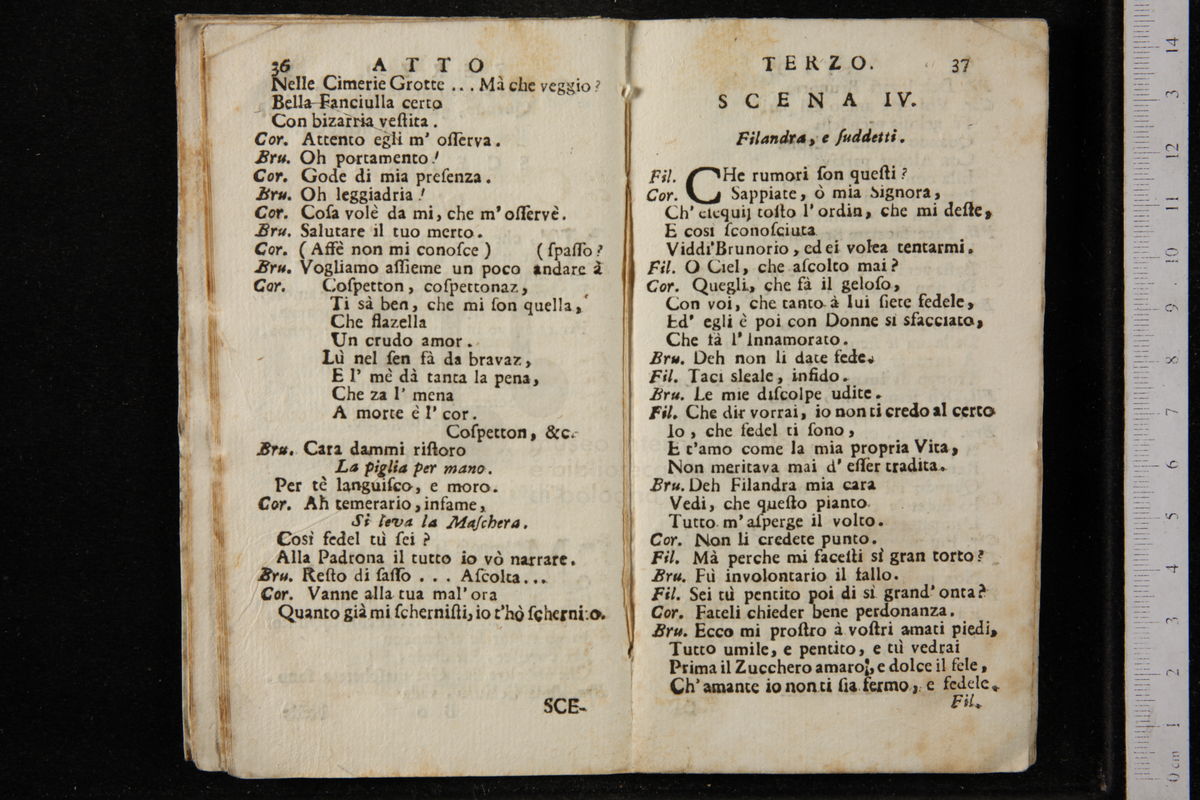 36 ATTO
Nelle Cimerie Grotte ... Mà che veggio?
Bella Fanciulla certo
Con bizarria veſtita.
Cor. Attento egli m' oſſerva.
Bru. Oh portamento!
Cor. Gode di mia preſenza.
Bru. Oh leggiadria!
Cor. Coſa volè da mi, che m'oſſervè.
Bru. Salutare il tuo merto.
Cor. (Affè non mi conoſce) (ſpaſſo?
Bru. Vogliamo aſſieme un poco andare à
Cor. Coſpetton, coſpettonaz,
Ti sà ben, che mi ſon quella,
Che flazella
Un crudo amor.
Lù nel ſen fà da bravaz,
E l' mè dà tanta la pena,
Che za l' mena
A morte è l' cor.
Coſpetton, &c.
Bru. Cara dammi riſtoro
La piglia per mano.
Per tè languiſco, e moro.
Cor. Ah temerario, infame,
Si leva la Maſchera.
Così fedel tù ſei?
Alla Padrona il tutto io vò narrare.
Bru. Reſto di ſaſſo ... Aſcolta...
Cor. Vanne alla tua mal' ora
Quanto già mi ſcherniſti, io t'hò ſchernito.
SCE-
TERZO. 37
SCENA IV.
Filandra, e ſuddetti.
Fil. CHe rumori ſon queſti?
Cor. Sappiate, ò mia Signora,
Ch' eſequij toſto l'ordin, che mi deſte,
E così ſconoſciuta
Viddi Brunorio, ed ei volea tentarmi.
Fil. O Ciel, che aſcolto mai?
Cor. Quegli, che fà il geloſo,
Con voi, che tanto à lui ſiete fedele,
Ed' egli è poi con Donne sì sfacciato,
Che fà l' Innamorato.
Bru. Deh non li date fede.
Fil. Taci sleale, infido.
Bru. Le mie diſcolpe udite.
Fil. Che dir vorrai, io non ti credo al certo
Io, che fedel ti ſono,
E t'amo come la mia propria Vita,
Non meritava mai d' eſſer tradita.
Bru. Deh Filandra mia cara
Vedi, che queſto pianto
Tutto m'aſperge il volto.
Cor. Non li credete punto.
Fil. Mà perche mi faceſti sì gran torto?
Bru. Fù involontario il fallo.
Fil. Sei tù pentito poi di sì grand' onta?
Cor. Fateli chieder bene perdonanza.
Bru. Ecco mi proſtro à voſtri amati piedi,
Tutto umile, e pentito, e tù vedrai
Prima il Zucchero amaro, e dolce il fele,
Ch' amante io non ti ſia fermo, e fedele.
Fil.